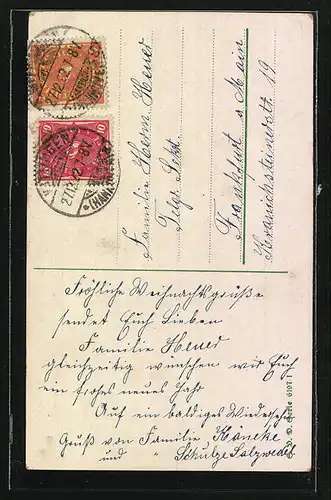 Familie Herm. Heuer
Telgr. Sekt.
Frankfurt a Main
19
Fröhliche Weihnachtsgrüße
sendet Euch Lieben
Familie Heuer
gleichzeitig wünschen wir Euch
ein frohes neues Jahr
Auf ein baldiges Wiedersehen
Gruß von Familie Häneke
und " Schulze Salzwedel
27.12.22.7-8V
27.12.22.7-8V
(HANN
Serie 6107